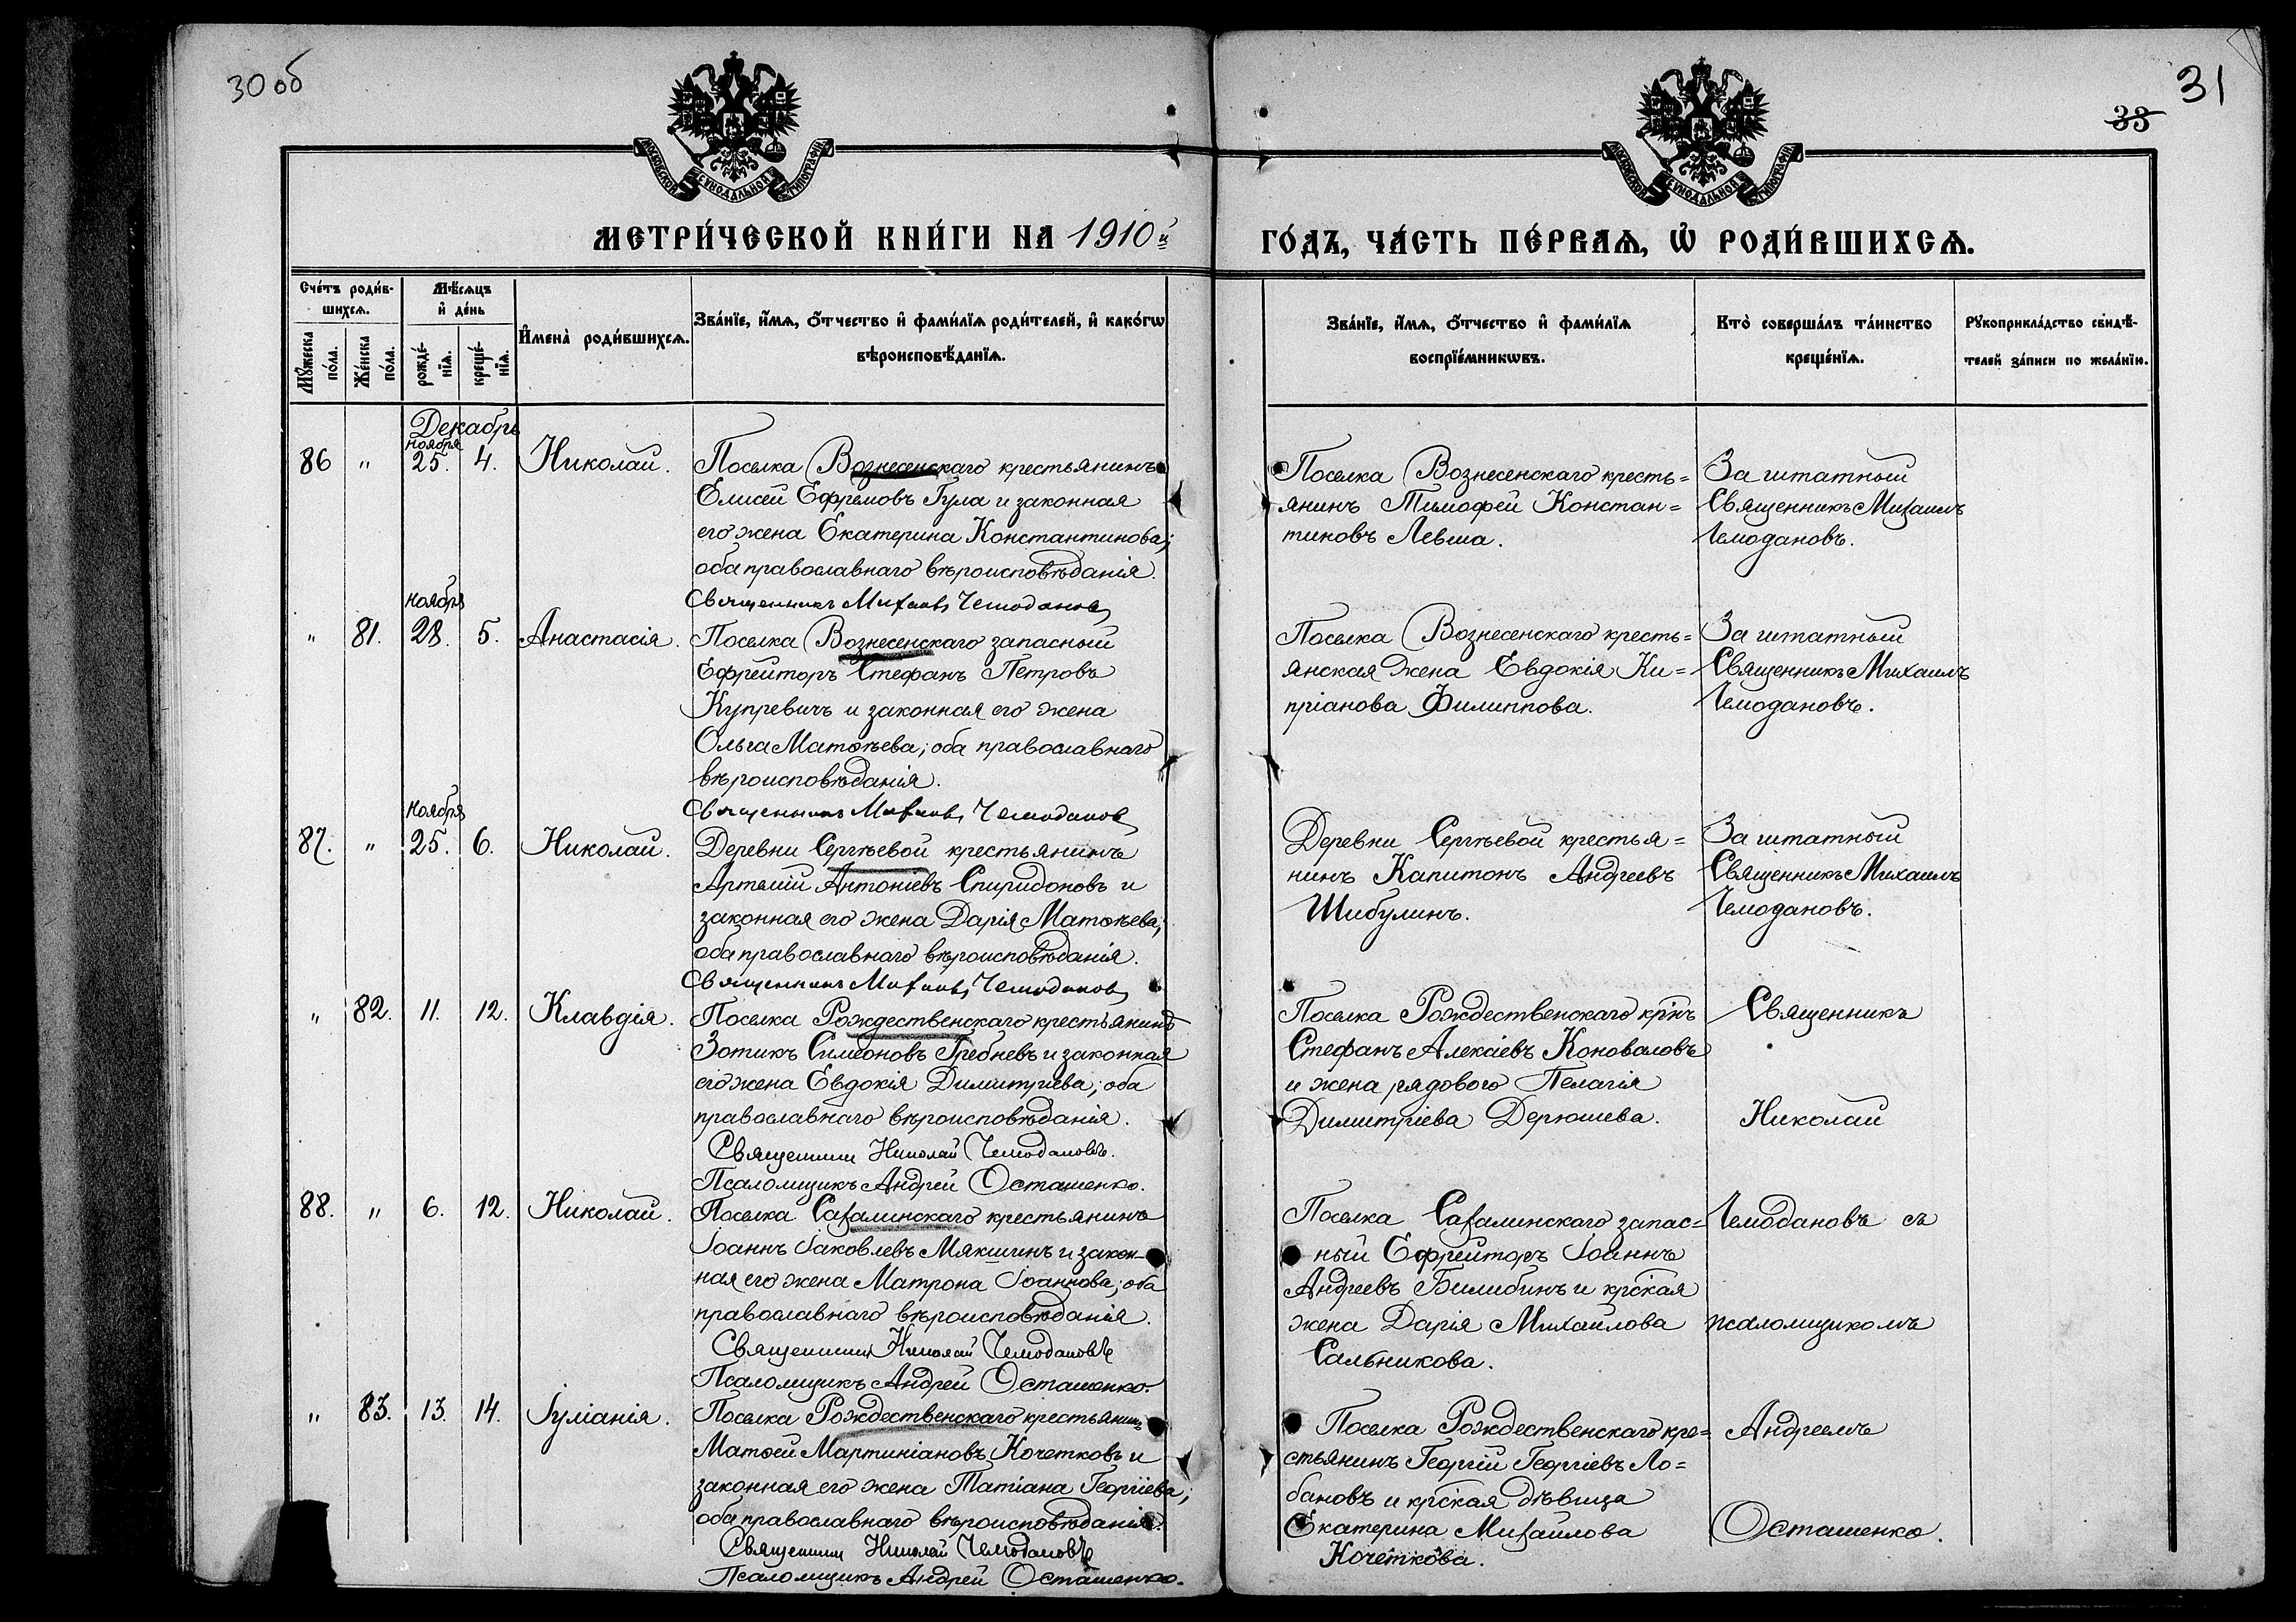 30 об
31
33
МОСКОВСКОЙ СѴНОДАЛЬНОЙ ТИПОГРАФІИ
МОСКОВСКОЙ СѴНОДАЛЬНОЙ ТИПОГРАФІИ
МЕТРИ́ЧЕСКОЙ КНИ́ГИ НА 1910й
ГО́ДЪ, ЧА́СТЬ ПЕ́РВАѦ, Ѡ҆ РОДИ́ВШИХСѦ.
Сче́тъ роди́в-
шихсѧ.
Мꙋ́жеска по́ла.
Же́нска по́ла.
Мѣ́сѧцъ
и҆ де́нь
рожде́-нїѧ.
креще́-нїѧ.
И҆мена̀ роди́вшихсѧ.
Зва́нїе, и҆́мѧ, ѻ҆́тчество и҆ фами́лїѧ роди́телей, и҆ како́гѡ
вѣроисповѣ́данїѧ.
Зва́нїе, и҆́мѧ, ѻ҆́тчество и҆ фами́лїѧ
воспрїе́мникѡвъ.
Кто̀ соверша́лъ та́инство
креще́нїѧ.
Рꙋкоприкла́дство свидѣ́-
телей за́писи по жела́нїю.
Декабрь
ноября
86 " 25. 4. Николай.
Поселка Вознесенскаго крестьянинъ
Елисей Ефремовъ Гула и законная
его жена Екатерина Константинова;
оба православнаго вѣроисповѣданія.
Священникъ Михаилъ Чемодановъ
Поселка Вознесенскаго кресть=
янинъ Тимофей Констан=
тиновъ Левша.
За штатный
Священникъ Михаилъ
Чемодановъ.
ноября
" 81. 28. 5. Анастасія.
Поселка Вознесенскаго запасный
Ефрейторъ Стефанъ Петровъ
Купревичъ и законная его жена
Ольга Матѳѣева; оба православнаго
вѣроисповѣданія.
Священникъ Михаилъ Чемодановъ
Поселка Вознесенскаго кресть=
янская жена Евдокія Ки=
пріанова Филиппова.
За штатный
Священникъ Михаилъ
Чемодановъ.
ноября
87. " 25. 6. Николай.
Деревни Сергѣевой крестьянинъ
Артемій Антоніевъ Спиридоновъ и
законная его жена Дарія Матѳѣева;
оба православнаго вѣроисповѣданія.
Священникъ Михаилъ Чемодановъ
Деревни Сергѣевой крестья=
нинъ Капитонъ Андреевъ
Шибулинъ.
За штатный
Священникъ Михаилъ
Чемодановъ.
" 82. 11. 12. Клавдія.
Поселка Рождественскаго крестьянинъ
Зотикъ Симеоновъ Гребневъ и законная
его жена Евдокія Димитріева; оба
православнаго вѣроисповѣданія.
Священникъ Николай Чемодановъ.
Псаломщикъ Андрей Осташенко.
Поселка Рождественскаго крнъ
Стефанъ Алексіевъ Коноваловъ
и жена рядового Пелагія
Димитріева Дерюшева.
Священникъ
Николай
88. " 6. 12. Николай.
Поселка Сахалинскаго крестьянинъ
Іоаннъ Іаковлевъ Мякшинъ и закон-
ная его жена Матрона Іоаннова; оба
православнаго вѣроисповѣданія.
Священникъ Николай Чемодановъ
Псаломщикъ Андрей Осташенко.
Поселка Сахалинскаго запас=
ный Ефрейторъ Іоаннъ
Андреевъ Билибинъ и крская
жена Дарія Михайлова
Сальникова.
Чемодановъ съ
псаломщикомъ
" 83. 13. 14. Іуліанія.
Поселка Рождественскаго крестьянинъ
Матѳей Мартиніановъ Кочетковъ и
законная его жена Татіана Георгіева;
оба православнаго вѣроисповѣданія.
Священникъ Николай Чемодановъ
Псаломщикъ Андрей Осташенко.
Поселка Рождественскаго кре=
стьянинъ Георгій Георгіевъ Ло=
бановъ и крская дѣвица
Екатерина Михайлова
Кочеткова.
Андреемъ
Осташенко.